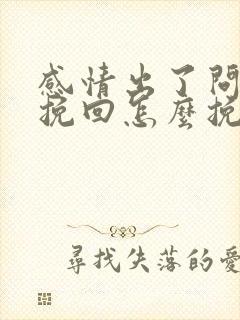 感情出了問
挽回怎麼挽
尋找失落的愛